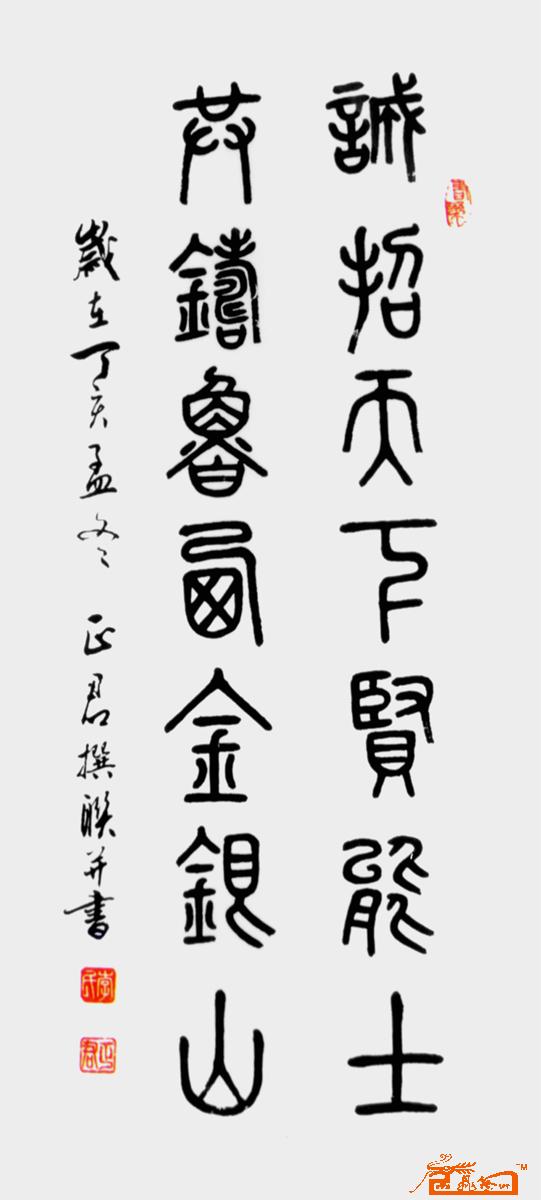 誠招天下賢能士
共鑄魯西金銀山
歲在丁亥孟冬 正君撰聯并書
李氏
正君